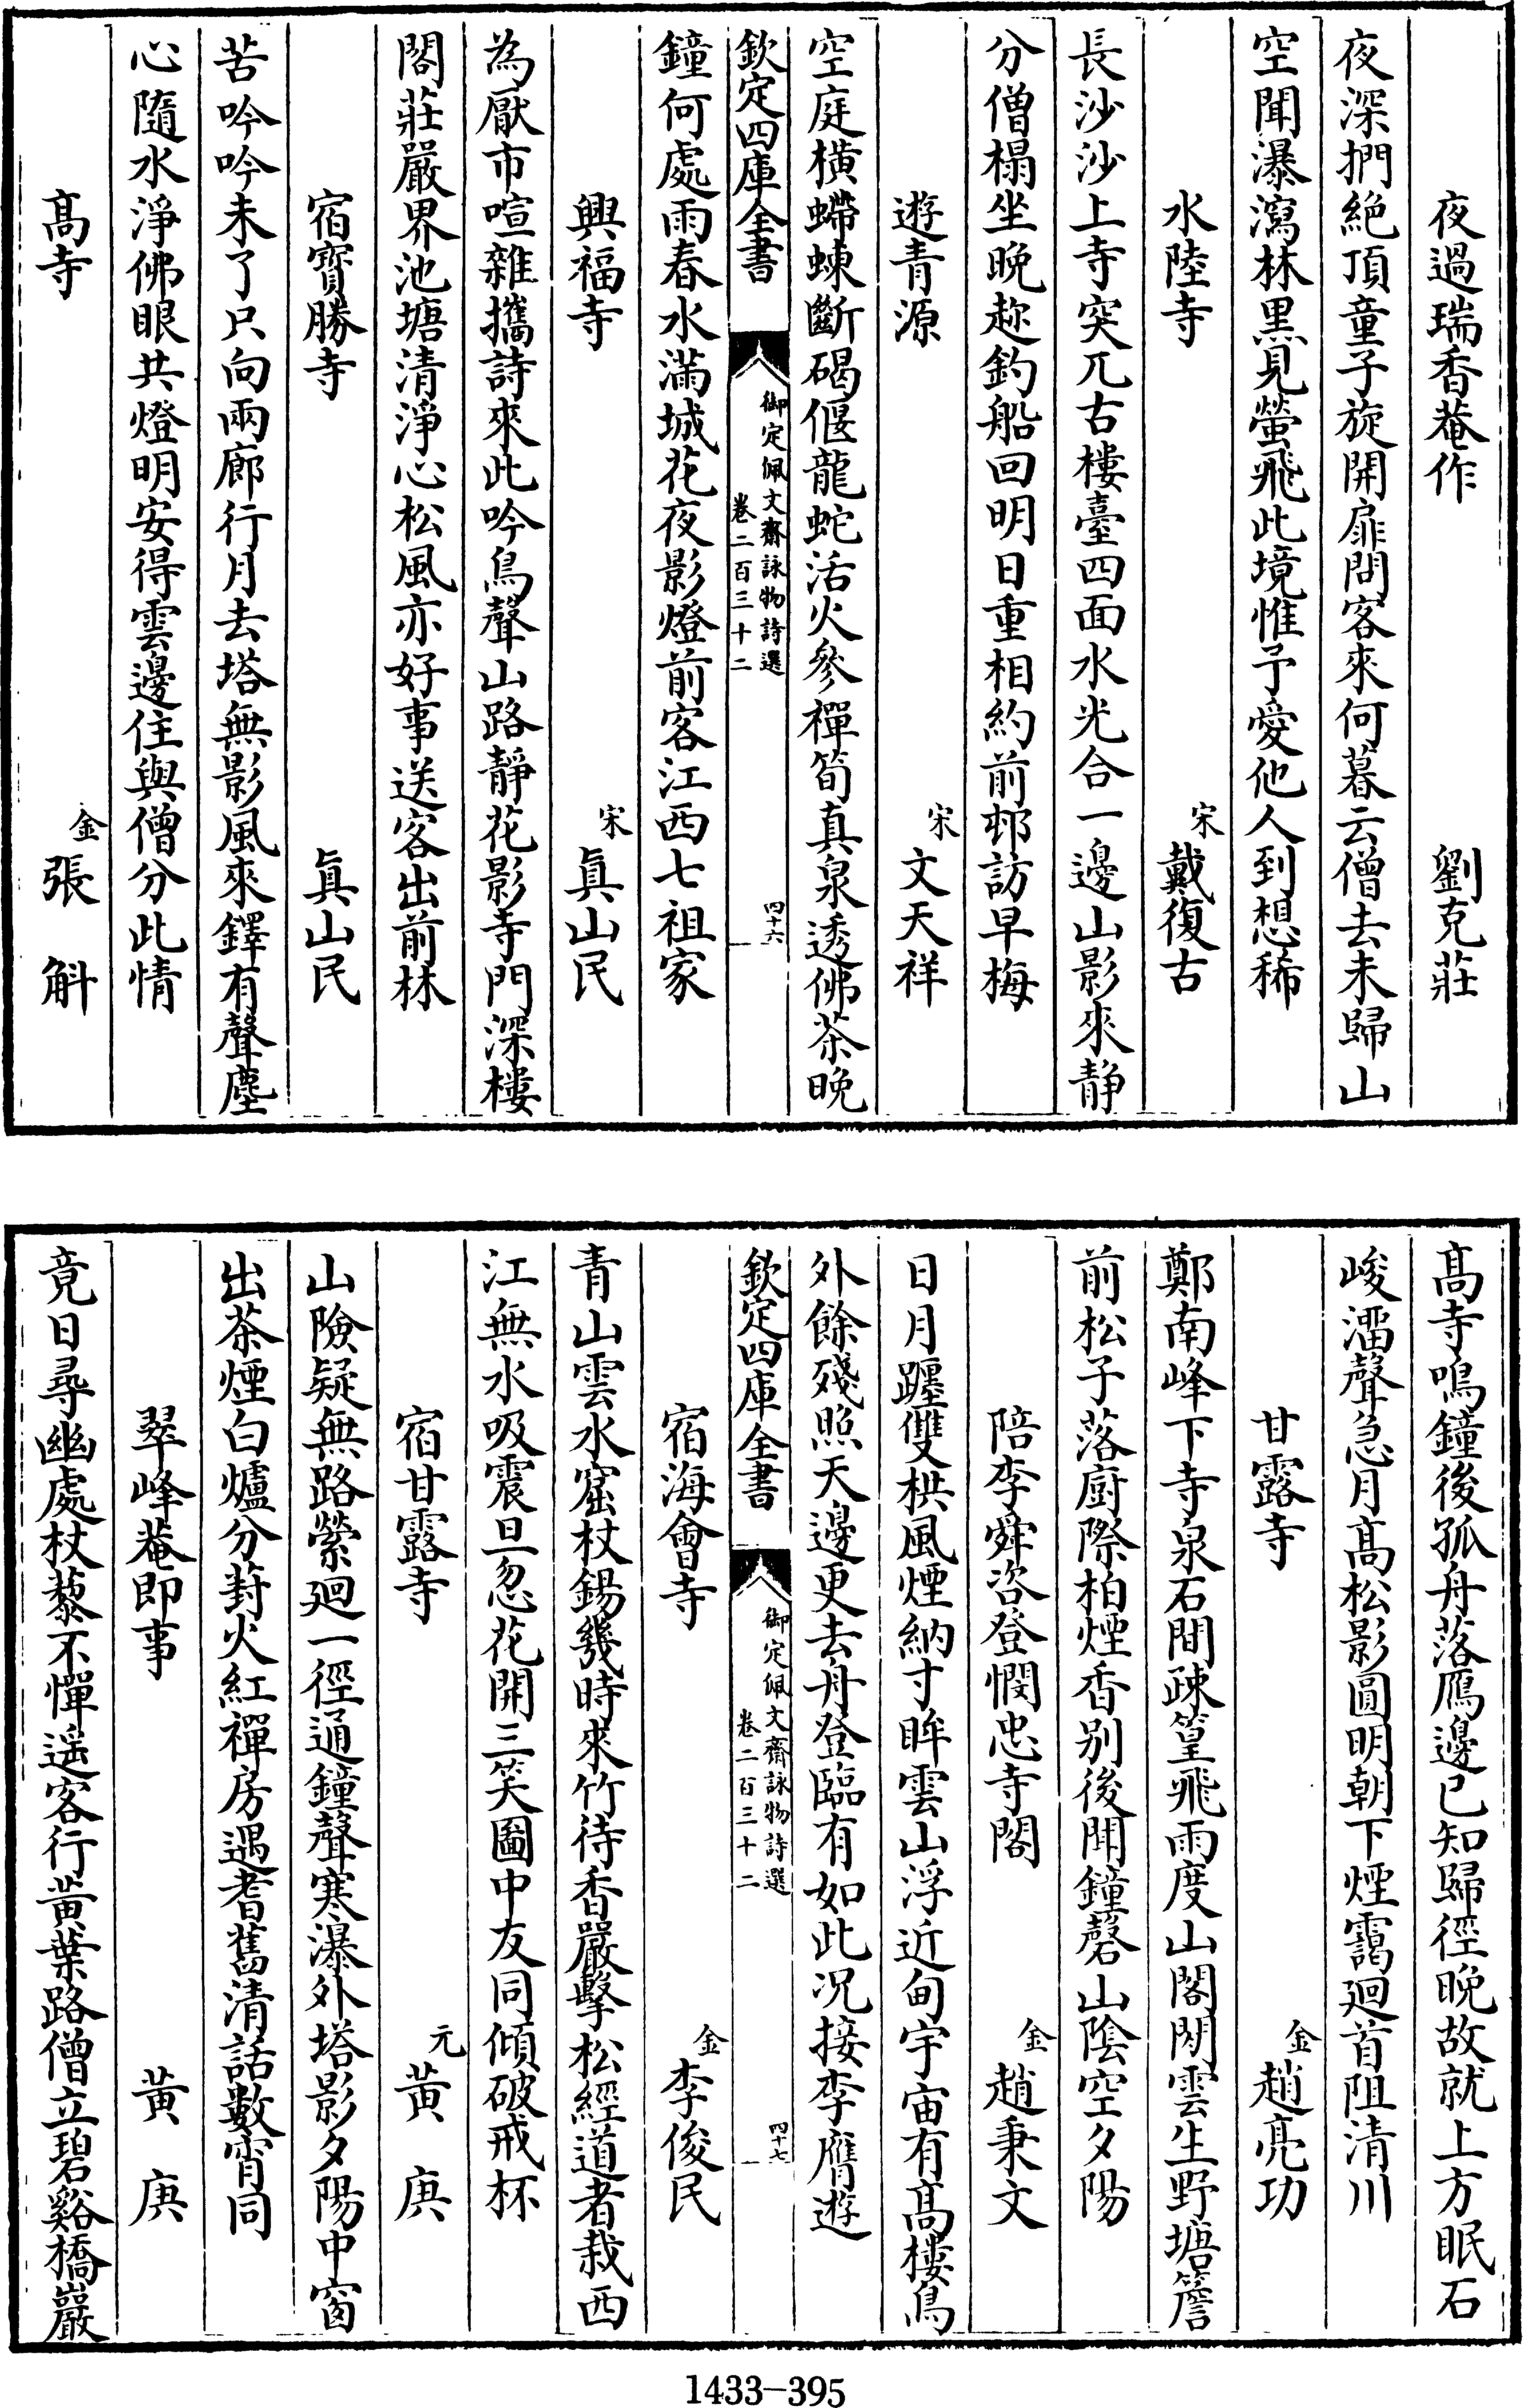 夜過瑞香菴作　劉克莊
夜深捫絶頂童子旋開扉問客來何暮云僧去未歸山
空聞瀑瀉林黒見螢飛此境惟予愛他人到想稀
水陸寺　宋戴復古
長沙沙上寺突兀古樓臺四面水光合一邊山影來静
分僧榻坐晚趂釣船回明日重相約前邨訪早梅
遊青源　宋文天祥
空庭橫螮蝀斷碣偃龍蛇活火參禪筍真泉透佛茶晚
欽定四庫全書　御定佩文齋詠物詩選卷二百三十二　四十六
鐘何處雨春水滿城花夜影燈前客江西七祖家
興福寺　宋真山民
為厭市喧雜攜詩來此吟鳥聲山路靜花影寺門深樓
閣莊嚴界池塘清淨心松風亦好事送客出前林
宿寳勝寺　真山民
苦吟吟未了只向兩廊行月去塔無影風來鐸有聲塵
心隨水淨佛眼共燈明安得雲邊住與僧分此情
髙寺　金張斛
髙寺鳴鐘後孤舟落鴈邊已知歸徑晚故就上方眠石
峻溜聲急月髙松影圓明朝下煙靄廻首阻清川
甘露寺　金趙亮功
鄭南峰下寺泉石間疎篁飛雨度山閣閒雲生野塘簷
前松子落厨際柏煙香别後聞鐘磬山陰空夕陽
陪李舜咨登憫忠寺閣　金趙秉文
日月躔雙栱風煙納寸眸雲山浮近甸宇宙有髙樓鳥
外餘殘照天邊更去舟登臨有如此况接李膺遊
欽定四庫全書　御定佩文齋詠物詩選卷二百三十二　四十七
宿海會寺　金李俊民
青山雲水窟杖錫幾時來竹待香嚴擊松經道者栽西
江無水吸震旦忽花開三笑圖中友同傾破戒杯
宿甘露寺　元黃庚
山險疑無路縈廻一徑通鐘聲寒瀑外塔影夕陽中窗
出茶煙白爐分葑火紅禪房遇耆舊清話數宵同
翠峰菴即事　黃庚
竟日尋幽處杖藜不憚遥客行黃葉路僧立碧谿橋巖
1433-395